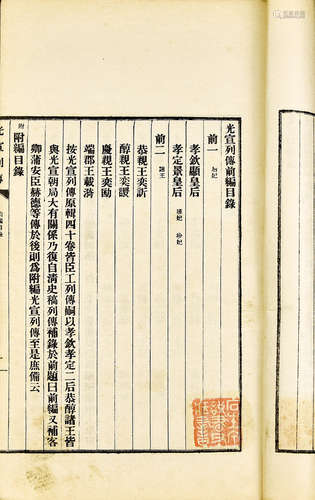 光宣列傳前編目錄
前一 后妃
孝欽顯皇后
孝定景皇后 瑾妃 珍妃
前二 諸王
恭親王奕訢
醇親王奕譞
慶親王奕劻
端郡王載漪
按光宣列傳原輯四十卷皆臣工列傳嗣以孝欽孝定二后恭醇諸王皆
與光宣朝局大有關係乃復自清史稿列傳補錄於前題曰前編又補客
卿蒲安臣赫德等傳於後則爲附編光宣列傳至是庶備云
附編目錄